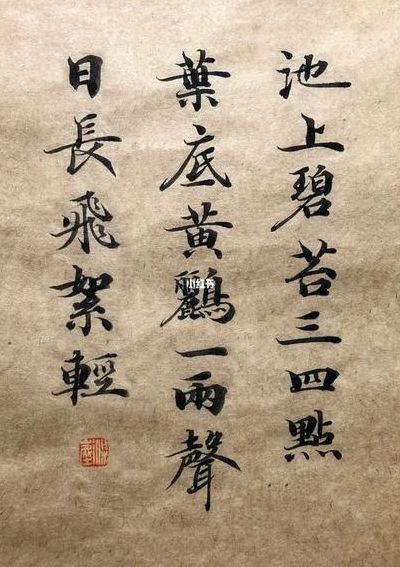 池上碧苔三四點
葉底黃鸝一兩聲
日長飛絮輕
小红书